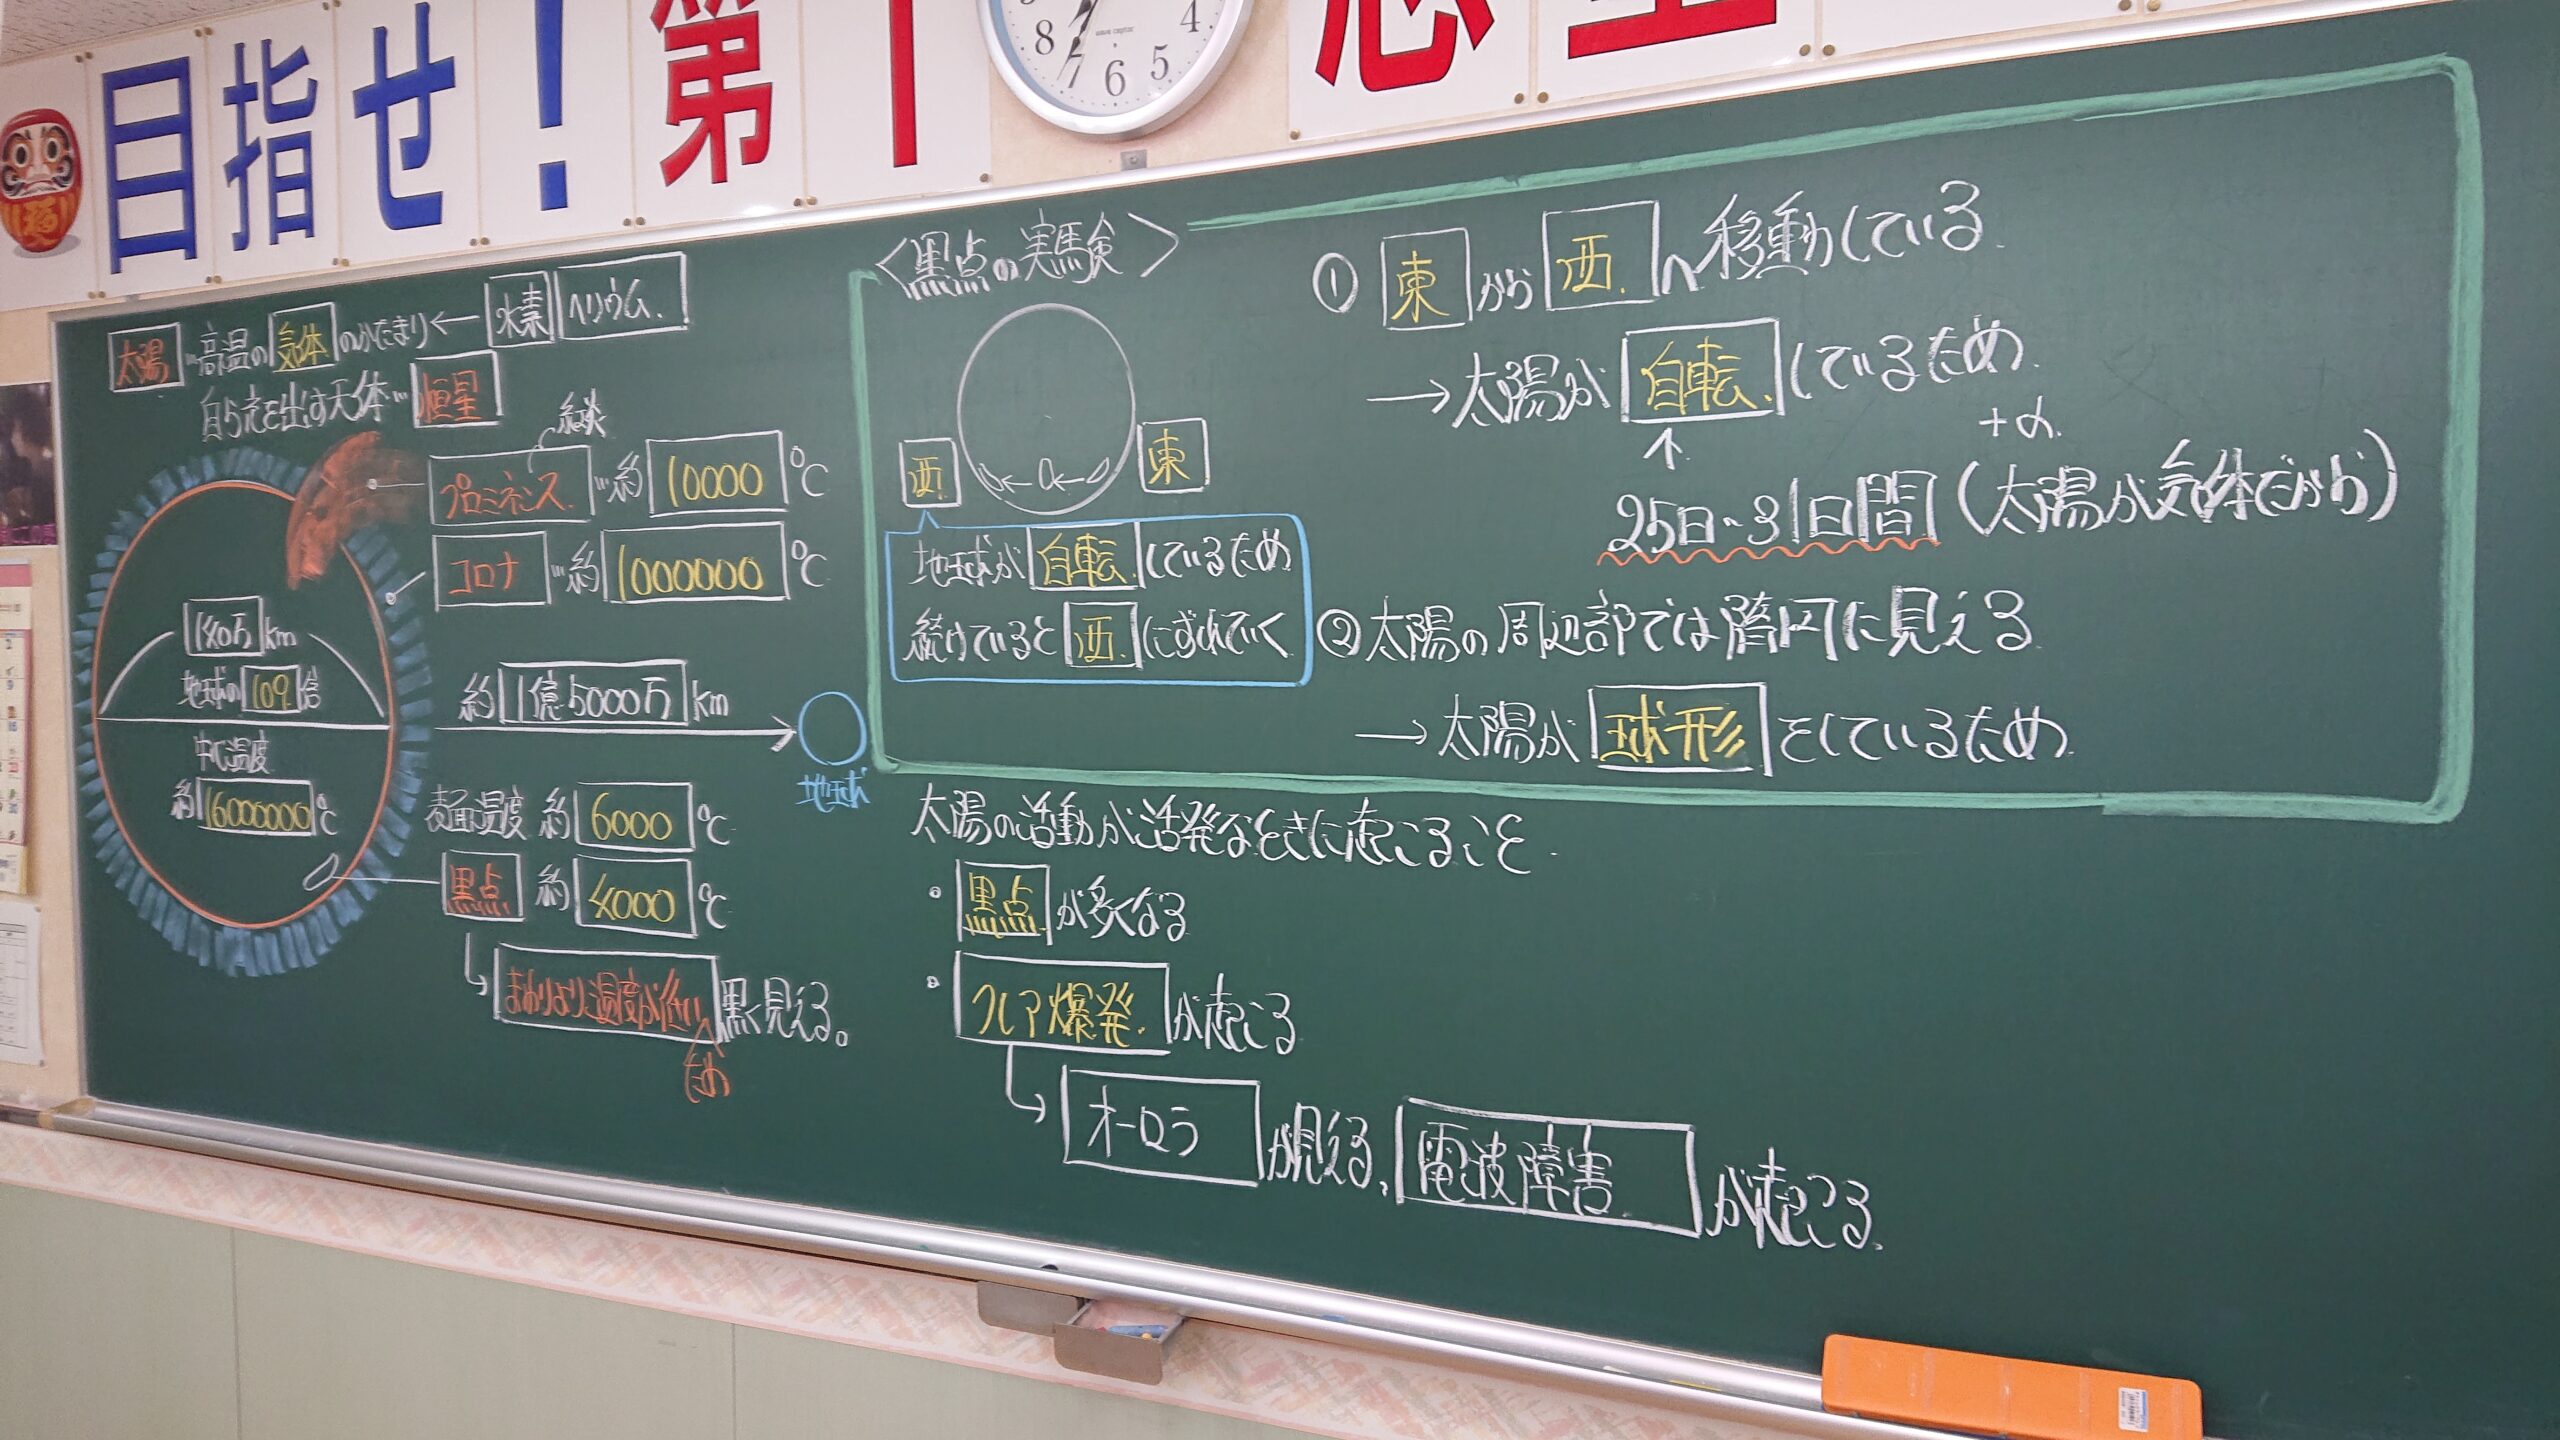 目指せ!第一志望
8 7 6 5 4
太陽…高温の気体のかたまり←水素 ヘリウム
自ら光を出す天体…恒星
プロミネンス…約10000℃
紅炎
コロナ…約1000000℃
140万km
地球の109倍
中心温度
約16000000℃
約1億5000万km
地球
表面温度 約6000℃
黒点 約4000℃
まわりより温度が低い黒く見える。
ため
<黒点の実験>
西 東
地球が自転しているため
続けていると西にずれていく
① 東から西へ移動している
→太陽が自転しているため
+α
25日~31日間(太陽が気体だから)
②太陽の周辺部では楕円に見える
→太陽が球形をしているため
太陽の活動が活発なときに起こること
・黒点が多くなる
・フレア爆発が起こる
オーロラが見える、電波障害が起こる